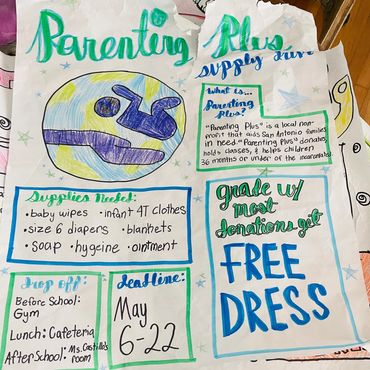 Parenting Plus
supply Drive
What is...
Parenting
Plus?
"Parenting Plus" is a local non-
profit that aids San Antonio families
in need. "Parenting Plus" donates,
hold classes, & helps children
36 months or under of the incarcerated
Supplies Needed:
• baby wipes • infant 4T clothes
• size 6 diapers • blankets
• soap • hygeine • ointment
grade w/
most
donations get
FREE
DRESS
Drop off:
Before School:
Gym
Lunch: Cafeteria
After School: Ms. Castillo's
room
deadline:
May
6-22